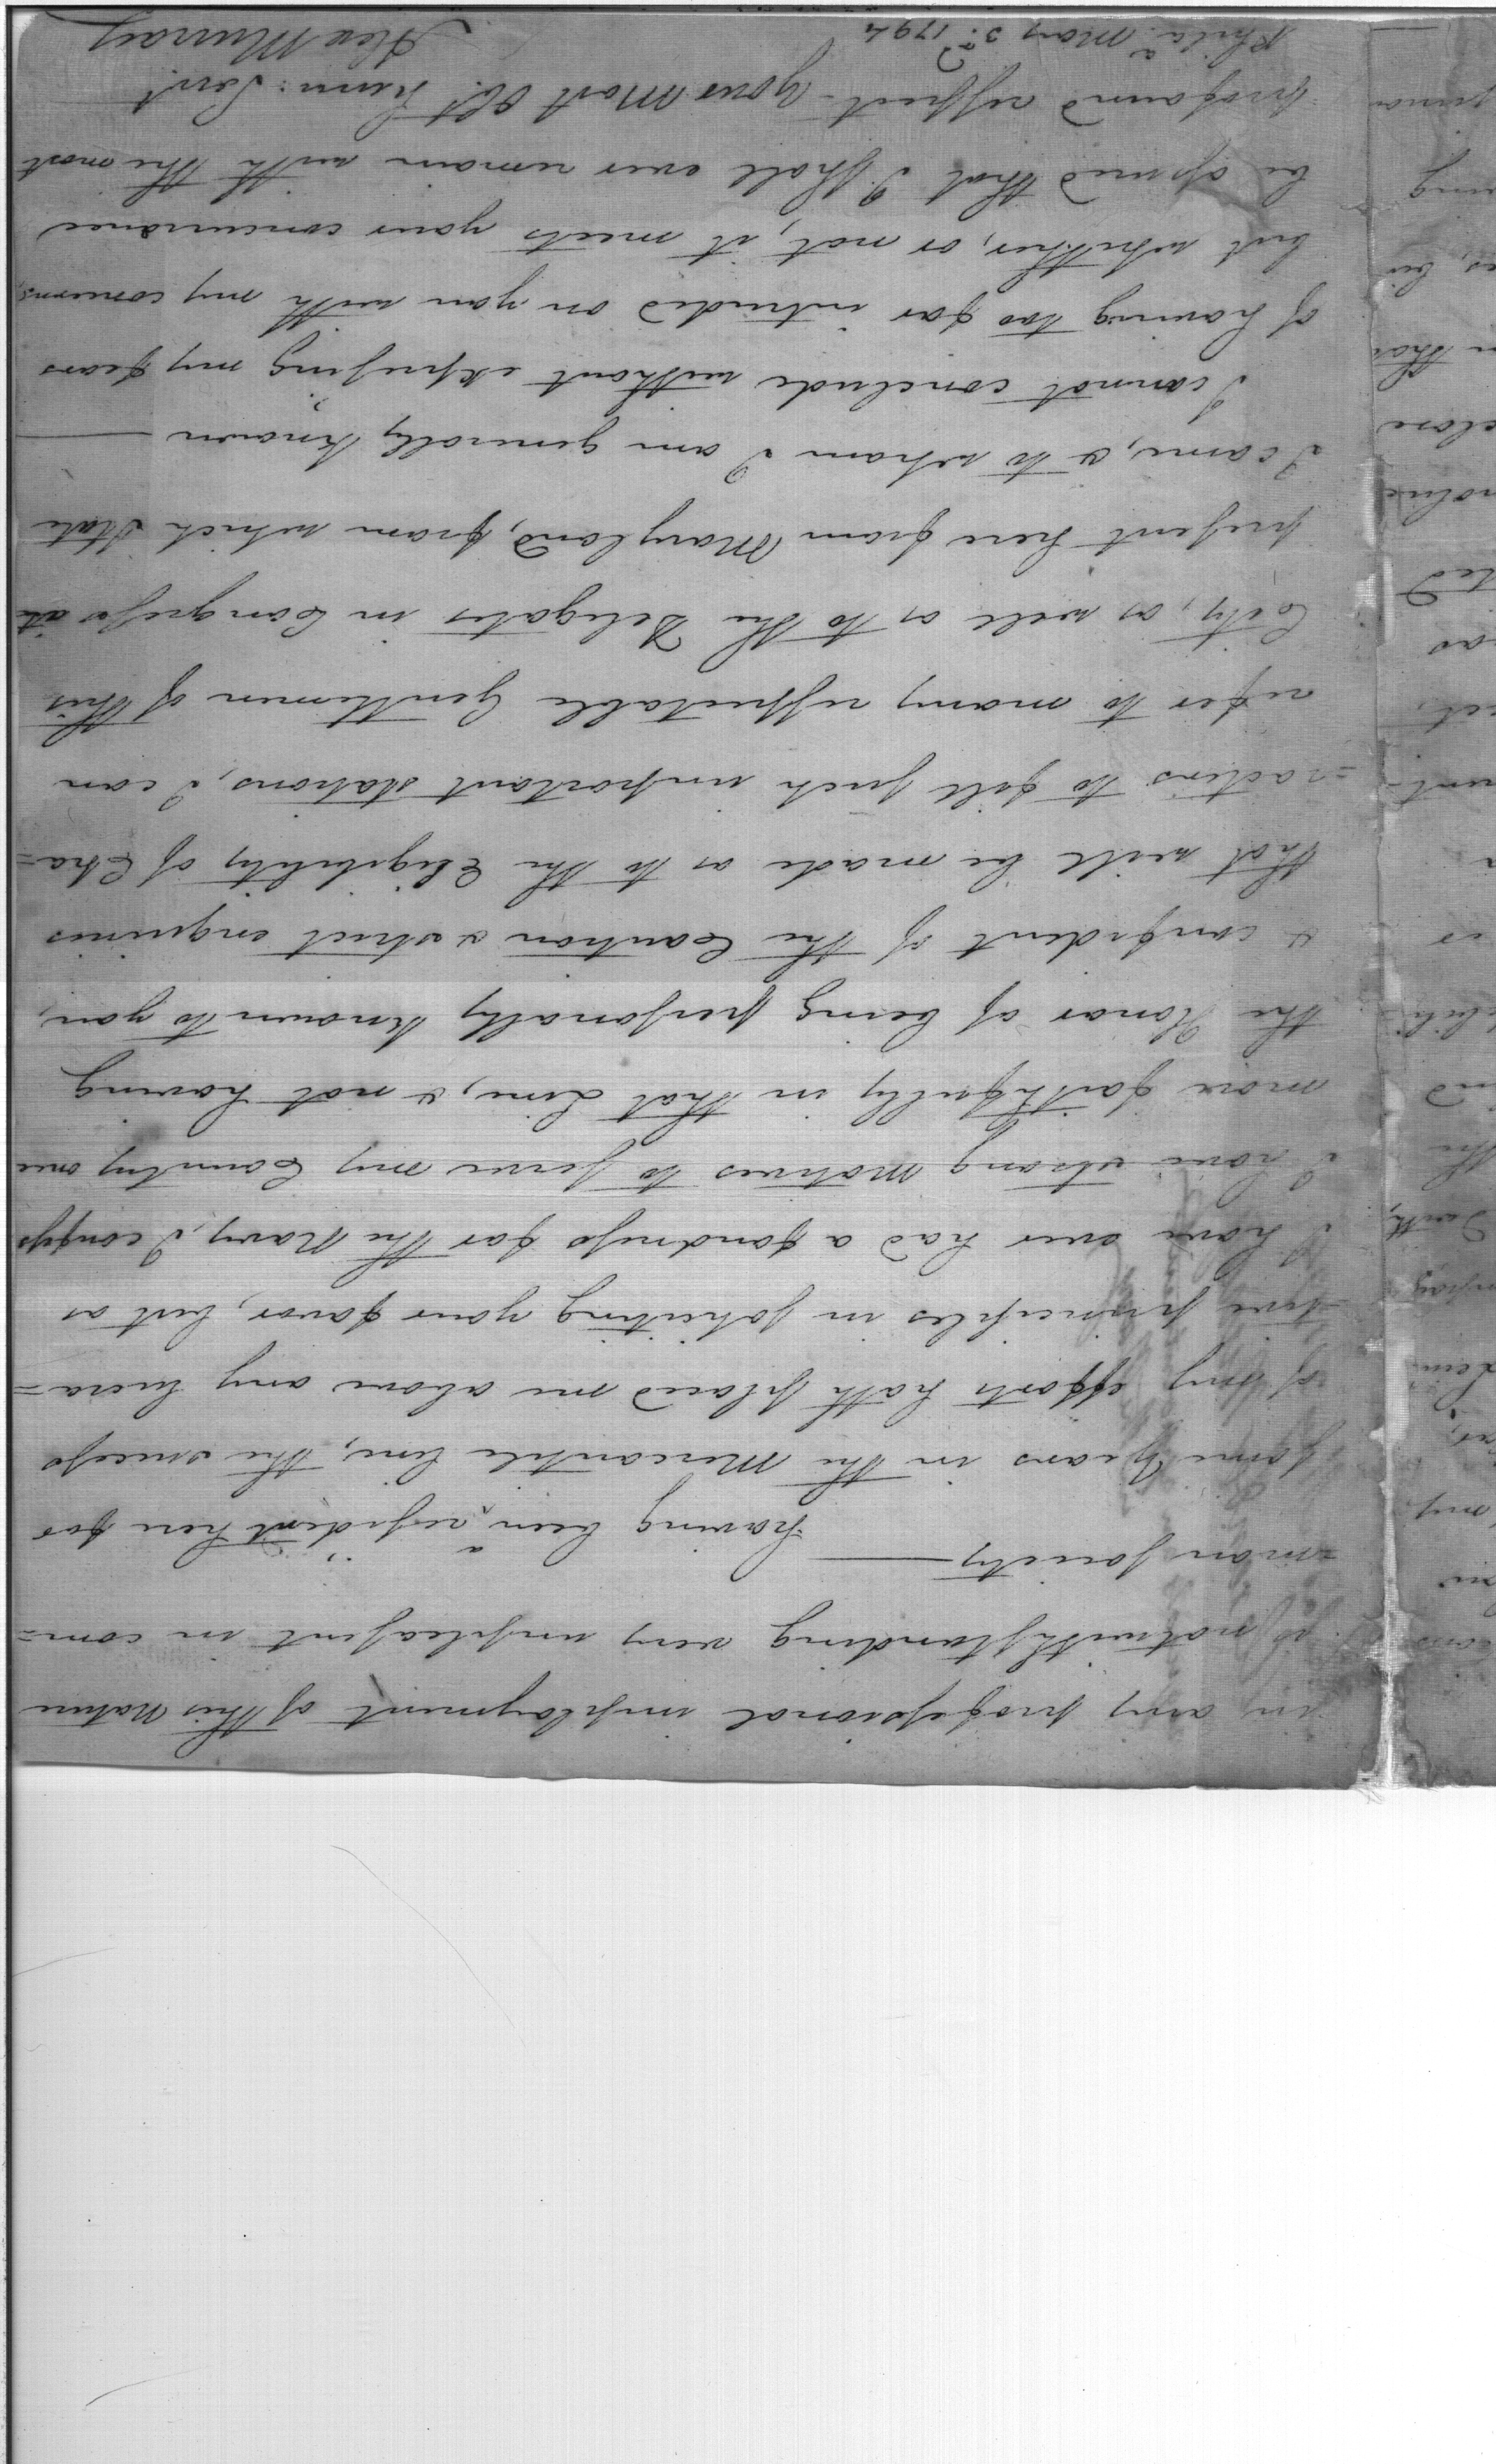 in any professional imployment of this Nature
is notwithstanding very unpleasent in com=
=mon society —— having been a resident here for
some Years in the Mercantile line, the success
of my efforts hath placed me above any lucra=
=tive principles in soliciting your favor, but as
I have ever had a fondness for the Navy, I confess
I have strong motives to serve my Country once
more faithfully in that Line, & not having
the Honor of being personally known to you,
& confident of the Caution & strict enquiries
that will be made as to the Eligibility of Cha=
=racters to fill such important stations, I can
refer to many respectable Gentlemen of this
City, as well as to the Delegates in Congress at
present here from Maryland, from which State
I came, & to whom I am generally known ——
I cannot conclude without expressing my fears
of having too far intruded on you with my concerns,
but whether, or not, it meets your concurrance
be assured that I shall ever remain with the most
profound respect - Your Most Obt Hum: Servt
Alex Murray
Phila. May 3d. 1794